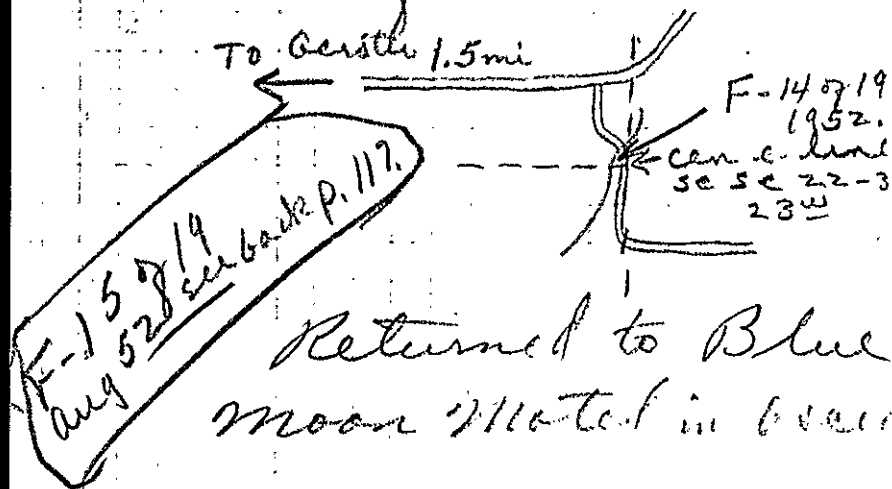 To 1.5mi
F-14 of 19
1952.
cen e line
se se 22-3
23w
F-15 of 19
aug 52 see back p. 117.
Returned to Blue
moon Motel in